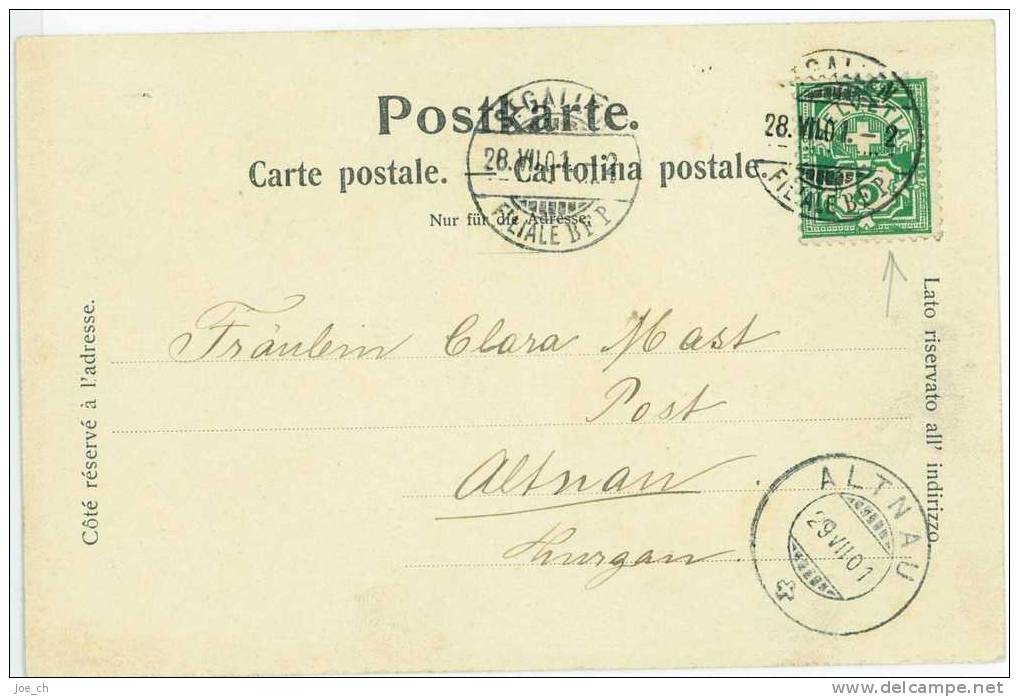 Postkarte.
Carte postale. — Cartolina postale.
Nur für die Adresse.
ST. GALLEN
28. VII.01. – 2
FILIALE BFP
ST. GALLEN
28. VII.01. – 2
FILIALE BFP
HELVETIA
5
Côté réservé à l'adresse.
Lato riservato all' indirizzo
Fräulein Clara Mast
Post
Altnau
Thurgau
ALTNAU
29 VII 01
joe_ch
www.delcampe.net